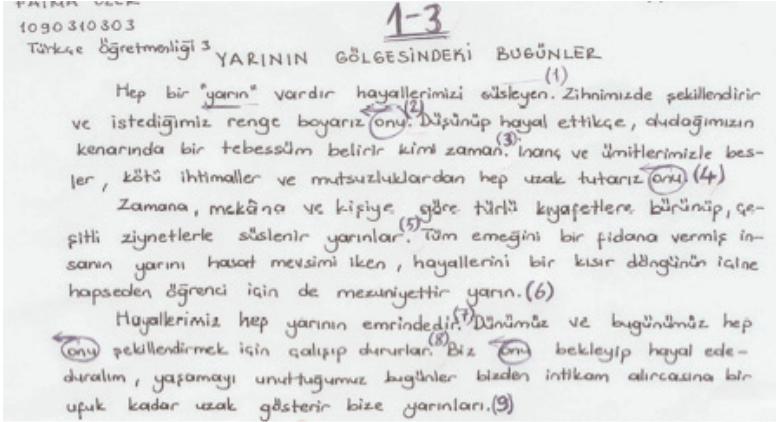 1-3
1090310303
Türkçe Öğretmenliği 3
YARININ GÖLGESİNDEKİ BUGÜNLER
Hep bir "yarın" vardır hayallerimizi süsleyen.(1) Zihnimizde şekillendirir
ve istediğimiz renge boyarız onu.(2) Düşünüp hayal ettikçe, dudağımızın
kenarında bir tebessüm belirir kimi zaman.(3) İnanç ve ümitlerimizle bes-
ler, kötü ihtimaller ve mutsuzluklardan hep uzak tutarız onu.(4)
Zamana, mekâna ve kişiye göre türlü kıyafetlere bürünüp, çe-
şitli ziynetlerle süslenir yarınlar.(5) Tüm emeğini bir fidana vermiş in-
sanın yarını hasat mevsimi iken, hayallerini bir kısır döngünün içine
hapseden öğrenci için de mezuniyettir yarın.(6)
Hayallerimiz hep yarının emrindedir.(7) Dünümüz ve bugünümüz hep
onu şekillendirmek için çalışıp dururlar.(8) Biz onu bekleyip hayal ede-
duralım, yaşamayı unuttuğumuz bugünler bizden intikam alırcasına bir
ufuk kadar uzak gösterir bize yarınları.(9)